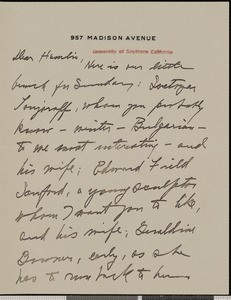 957 MADISON AVENUE
University of Southern California
Dear Hamlin,
Here is our little
bunch for Sunday:
whom you probably
know – writer – Bulgarian –
to me most interesting – and
his wife; Edward Field
Sanford, a young sculptor
whom I want you to like,
and his wife; Geraldine
early, as she
has to run back to